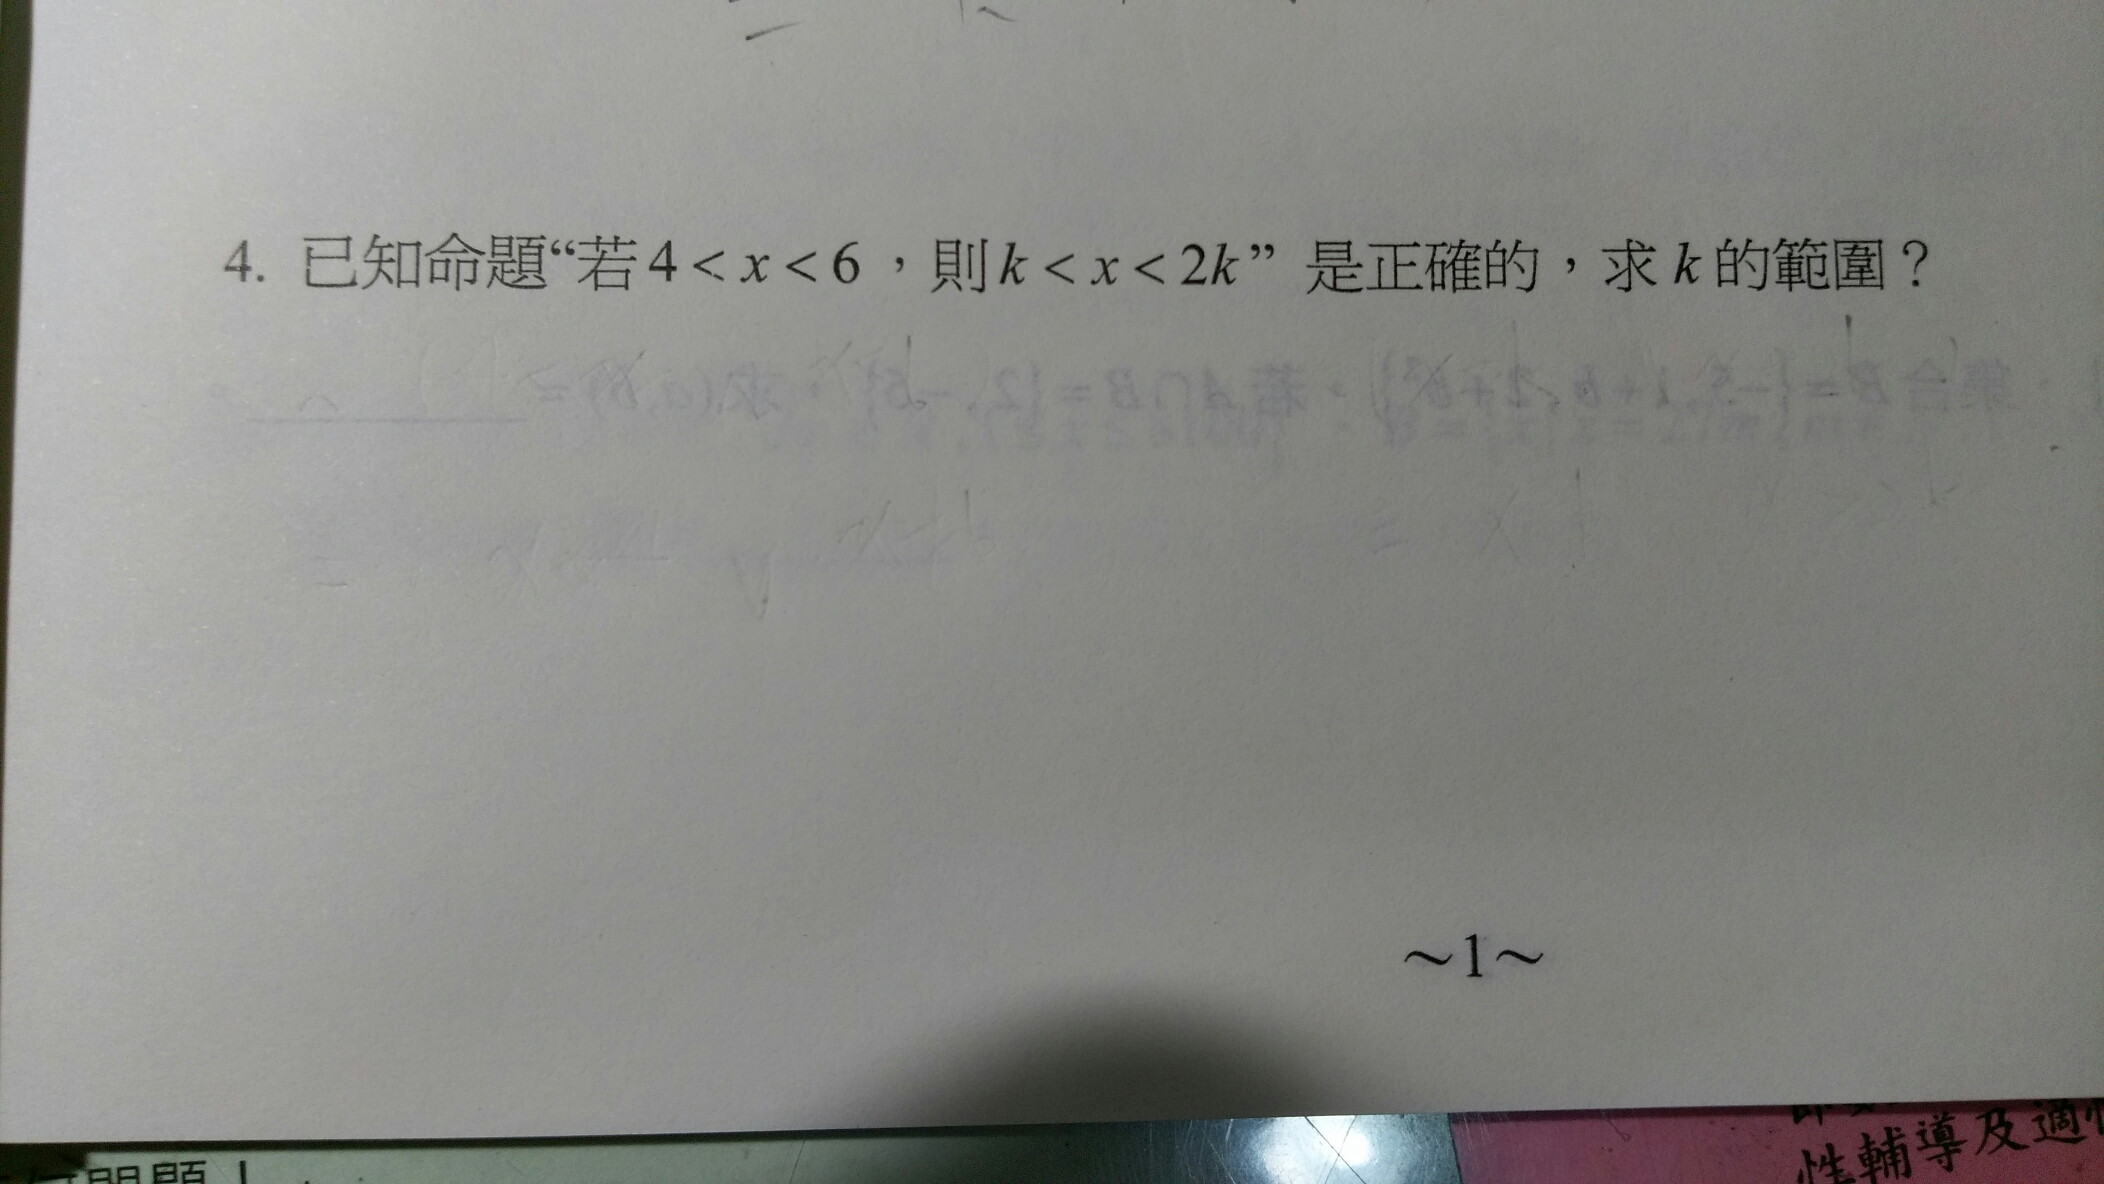 4. 已知命題“若4<x<6，則k<x<2k” 是正確的，求k的範圍？
~1~
性輔導及適